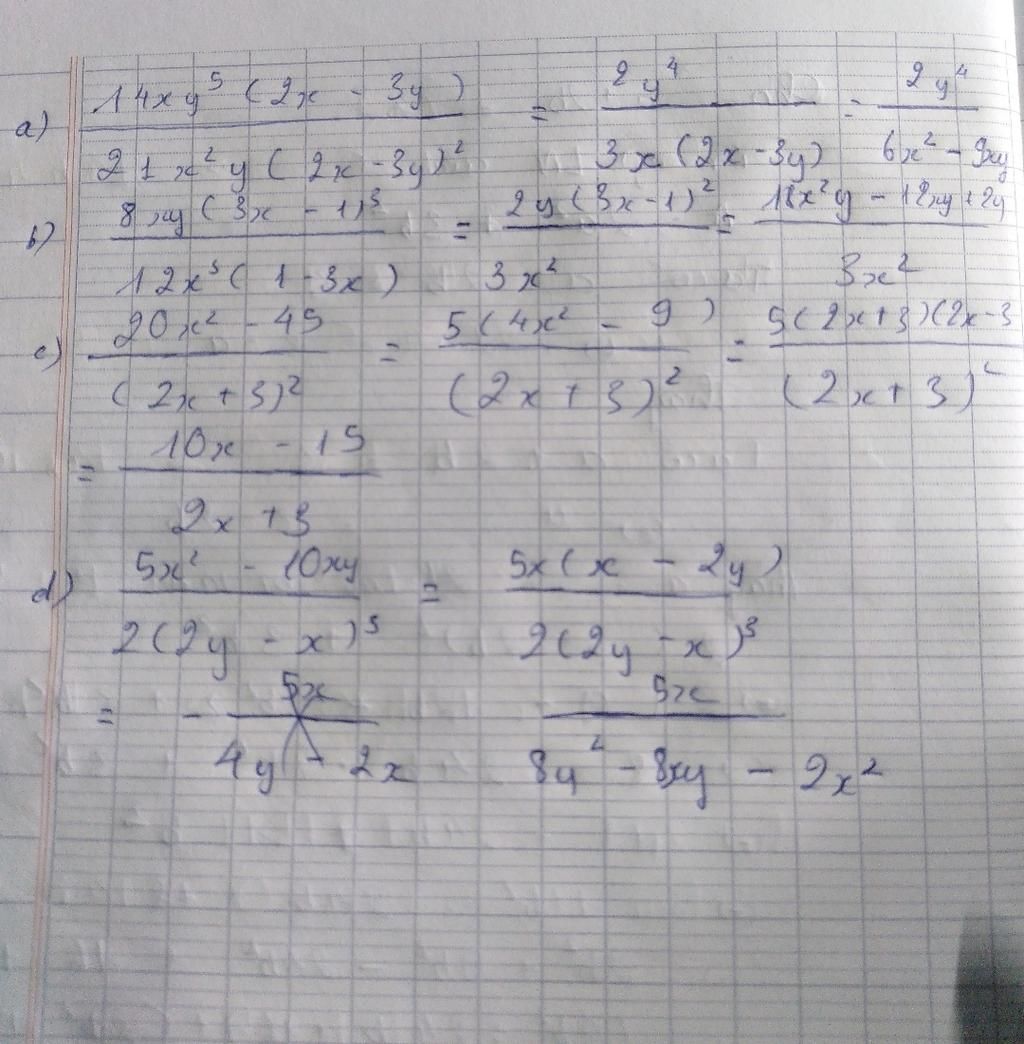 a) \frac{14xy^5(2x - 3y)}{21x^2y(2x - 3y)^2} = \frac{2y^4}{3x(2x - 3y)} = \frac{2y^4}{6x^2 - 9xy}
b) \frac{8xy(3x - 1)^3}{12x^3(1 - 3x)} = \frac{2y(3x - 1)^2}{3x^2} = \frac{18x^2y - 12xy + 2y}{3x^2}
c) \frac{20x^2 - 45}{(2x + 3)^2} = \frac{5(4x^2 - 9)}{(2x + 3)^2} = \frac{5(2x + 3)(2x - 3}{(2x + 3)^2}
= \frac{10x - 15}{2x + 3}
d) \frac{5x^2 - 10xy}{2(2y - x)^3} = \frac{5x(x - 2y)}{2(2y - x)^3}
= - \frac{5x}{4y - 2x} \frac{5x}{8y^2 - 8xy - 2x^2}